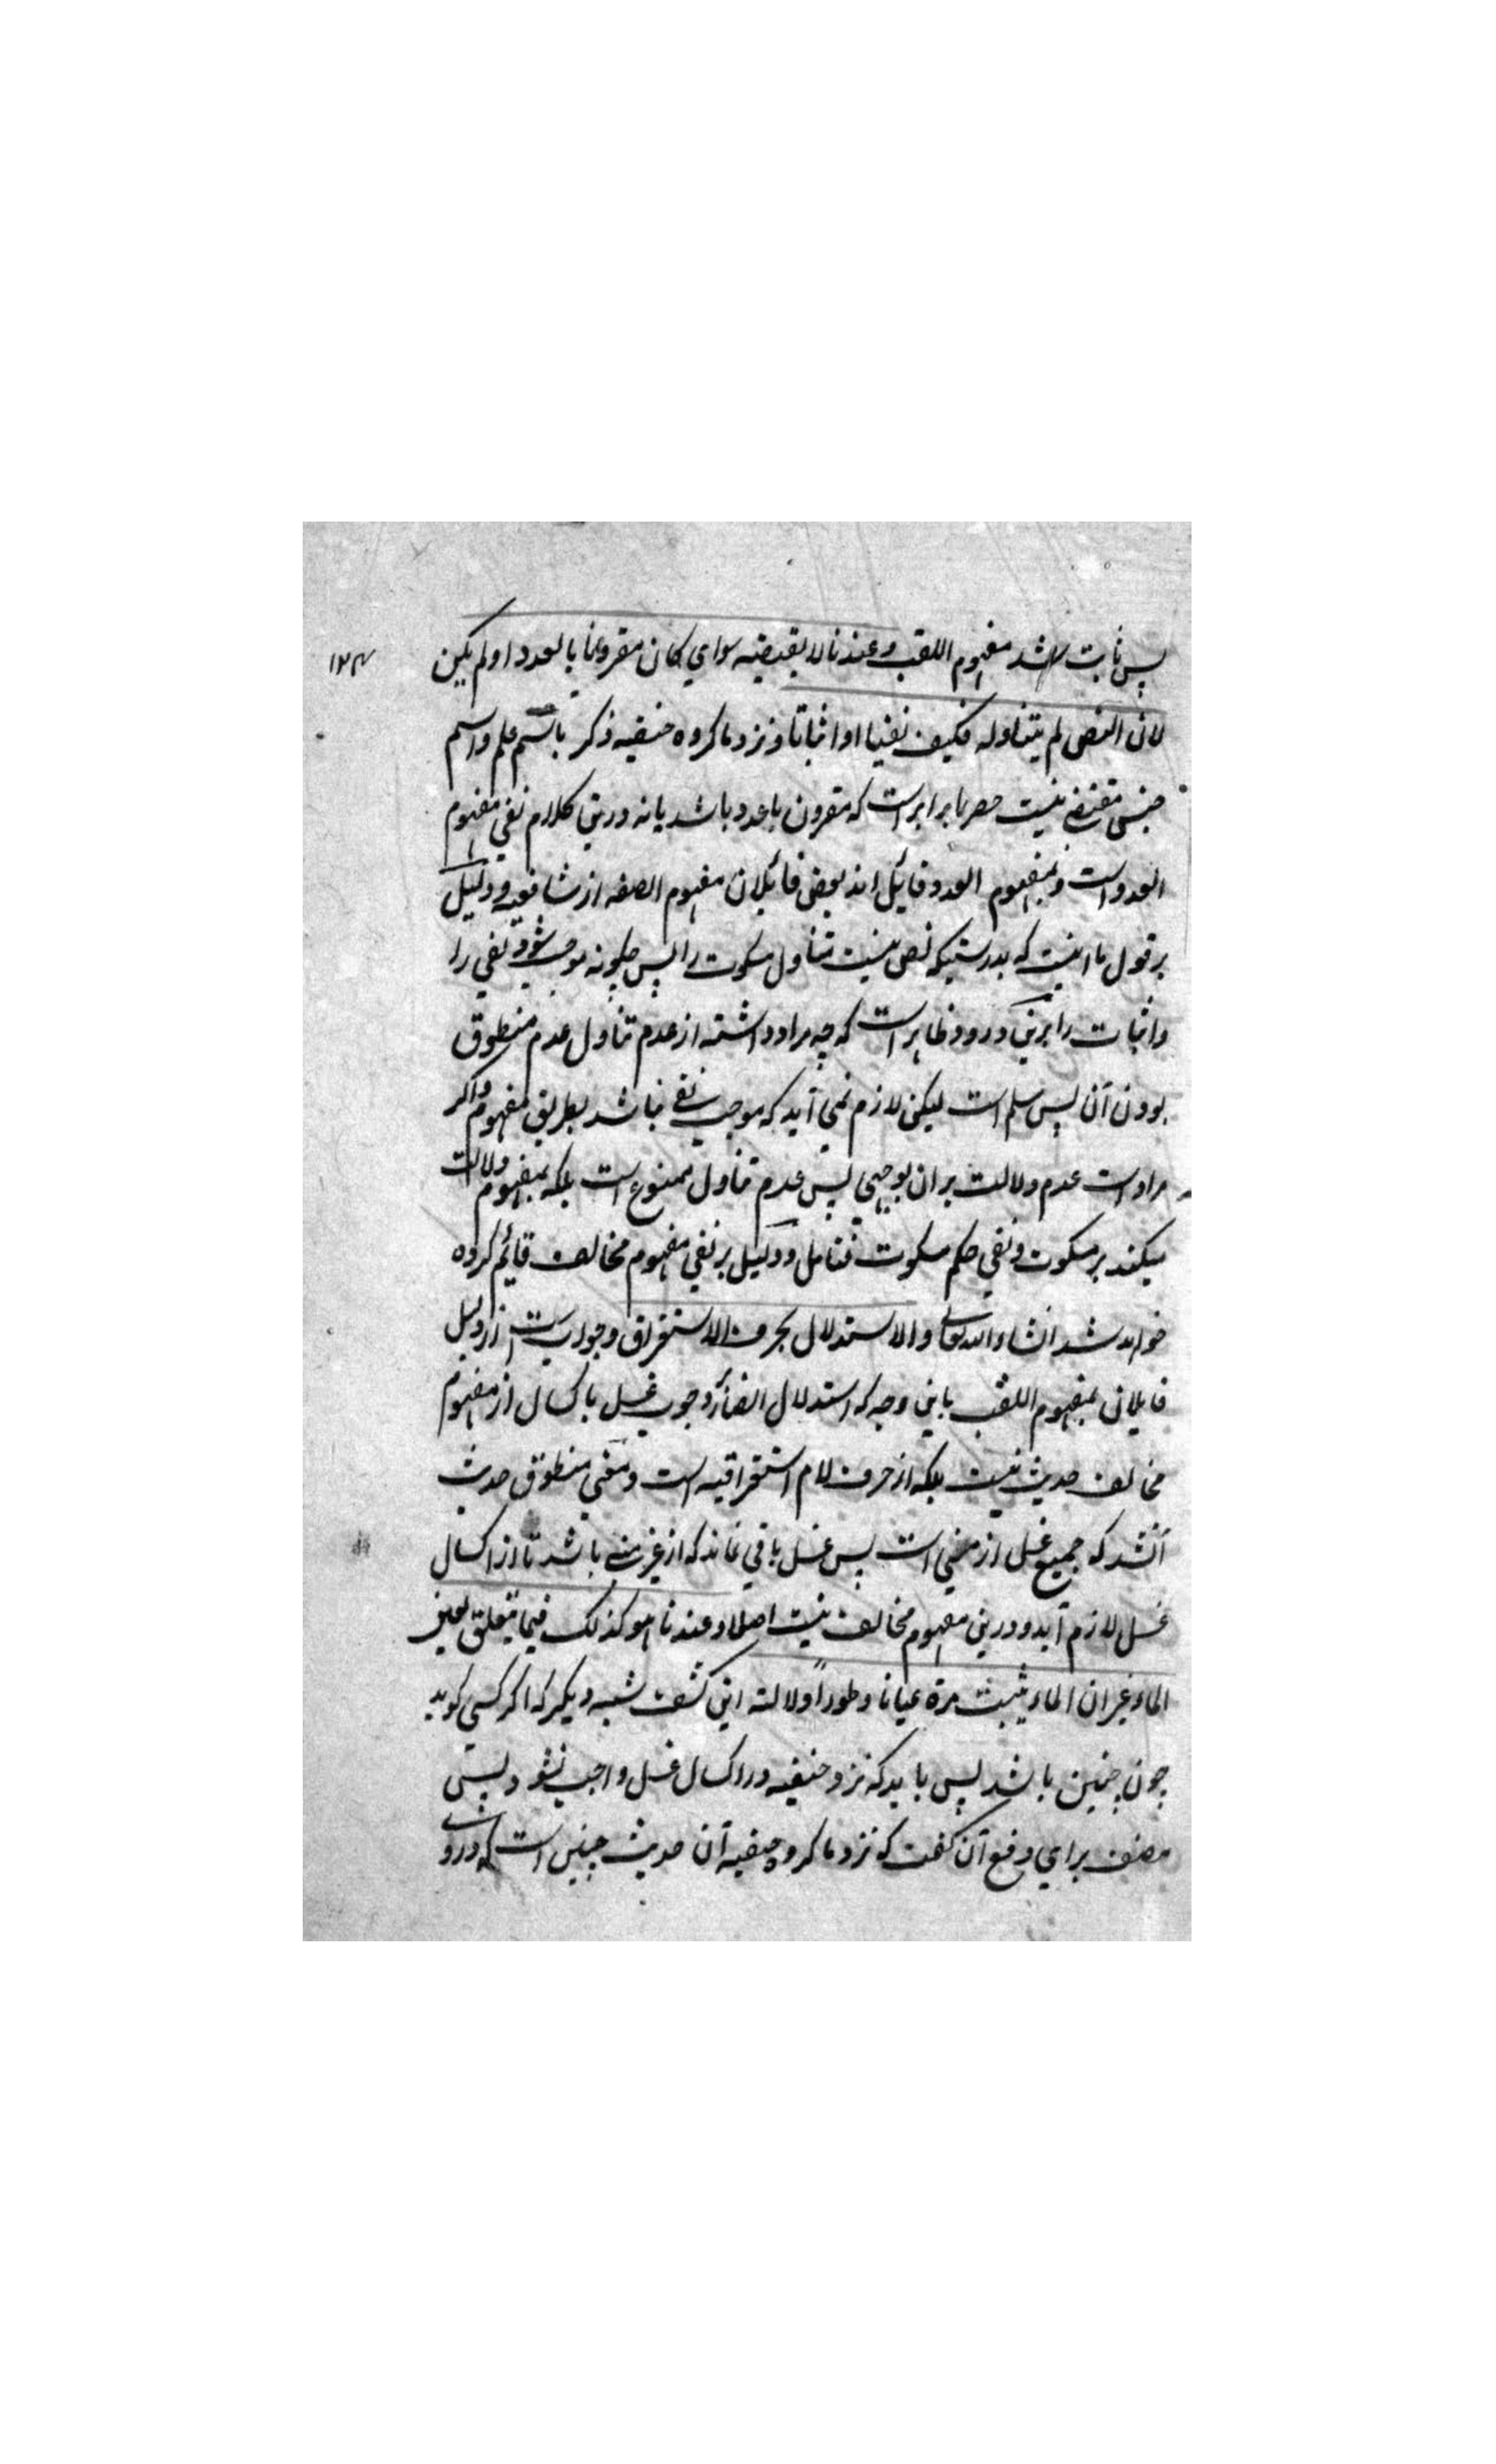 پس ثابت شد مفهوم اللقب وعندنا لا یقتضیه سواي کان مقرونا بالعدد او لم یکن
۱۲۴
لان النص لم یتناوله فکیف نفیا او اثباتا ونزد ما کروه حنفیه ذکر باسم علم واسم
جنس مقتضے نیست حصر را برابر است که مقرون باعدد باشد یا نه درین کلام نفي مفهوم
العدد است وبمفهوم العدد قائل اند بعض قائلان مفهوم الصفه از شافعیه ودلیل
بر قول ما اینست که بدرستیکه نص نیست متناول مسکوت را پس چکونه موجب شود نفي را
واثبات را برین وارد وظاهر است که چه مراد داشته از عدم تناول عدم منطوق
بودن آن پس مسلم است لیکن لازم نمي آید که موجب نفے نباشد بطریق مفهوم واکر
مراد است عدم دلالت بران بوجهي پس عدم تناول ممنوع است بلکه بمفهوم دلالت
میکند بر مسکوت ونفي حکم مسکوت فتامل ودلیل بر نفي مفهوم مخالف قائم کرده
خواهد شد انشاء الله تعالی والاستدلال بحرف الاستغراق وجواب است از دلیل
قایلان بمفهوم اللقب باین وجه که استدلال انصار وجوب غسل باکسال از مفهوم
مخالف حدیث نیست بلکه از حرف لام استغراقیه است ومعنی منطوق حدیث
آنشد که جمیع غسل از مني است پس غسل باقي نماند که از غیر منے باشد تا از اکسال
غسل لازم آید ودرین مفهوم مخالف نیست اصلا وعندنا هو کذلک فیما یتعلق بعین
الماء غیر ان الماء یثبت مرة عیانا وطوراً دلالته این کشف شبه دیکر که اکر کسي کوید
چون چنین باشد پس باید که نزد حنفیه در اکسال غسل واجب نشود پس
مصنف براي دفع آن کفت که نزد ما کروه حنفیه آن حدیث چنین است که در